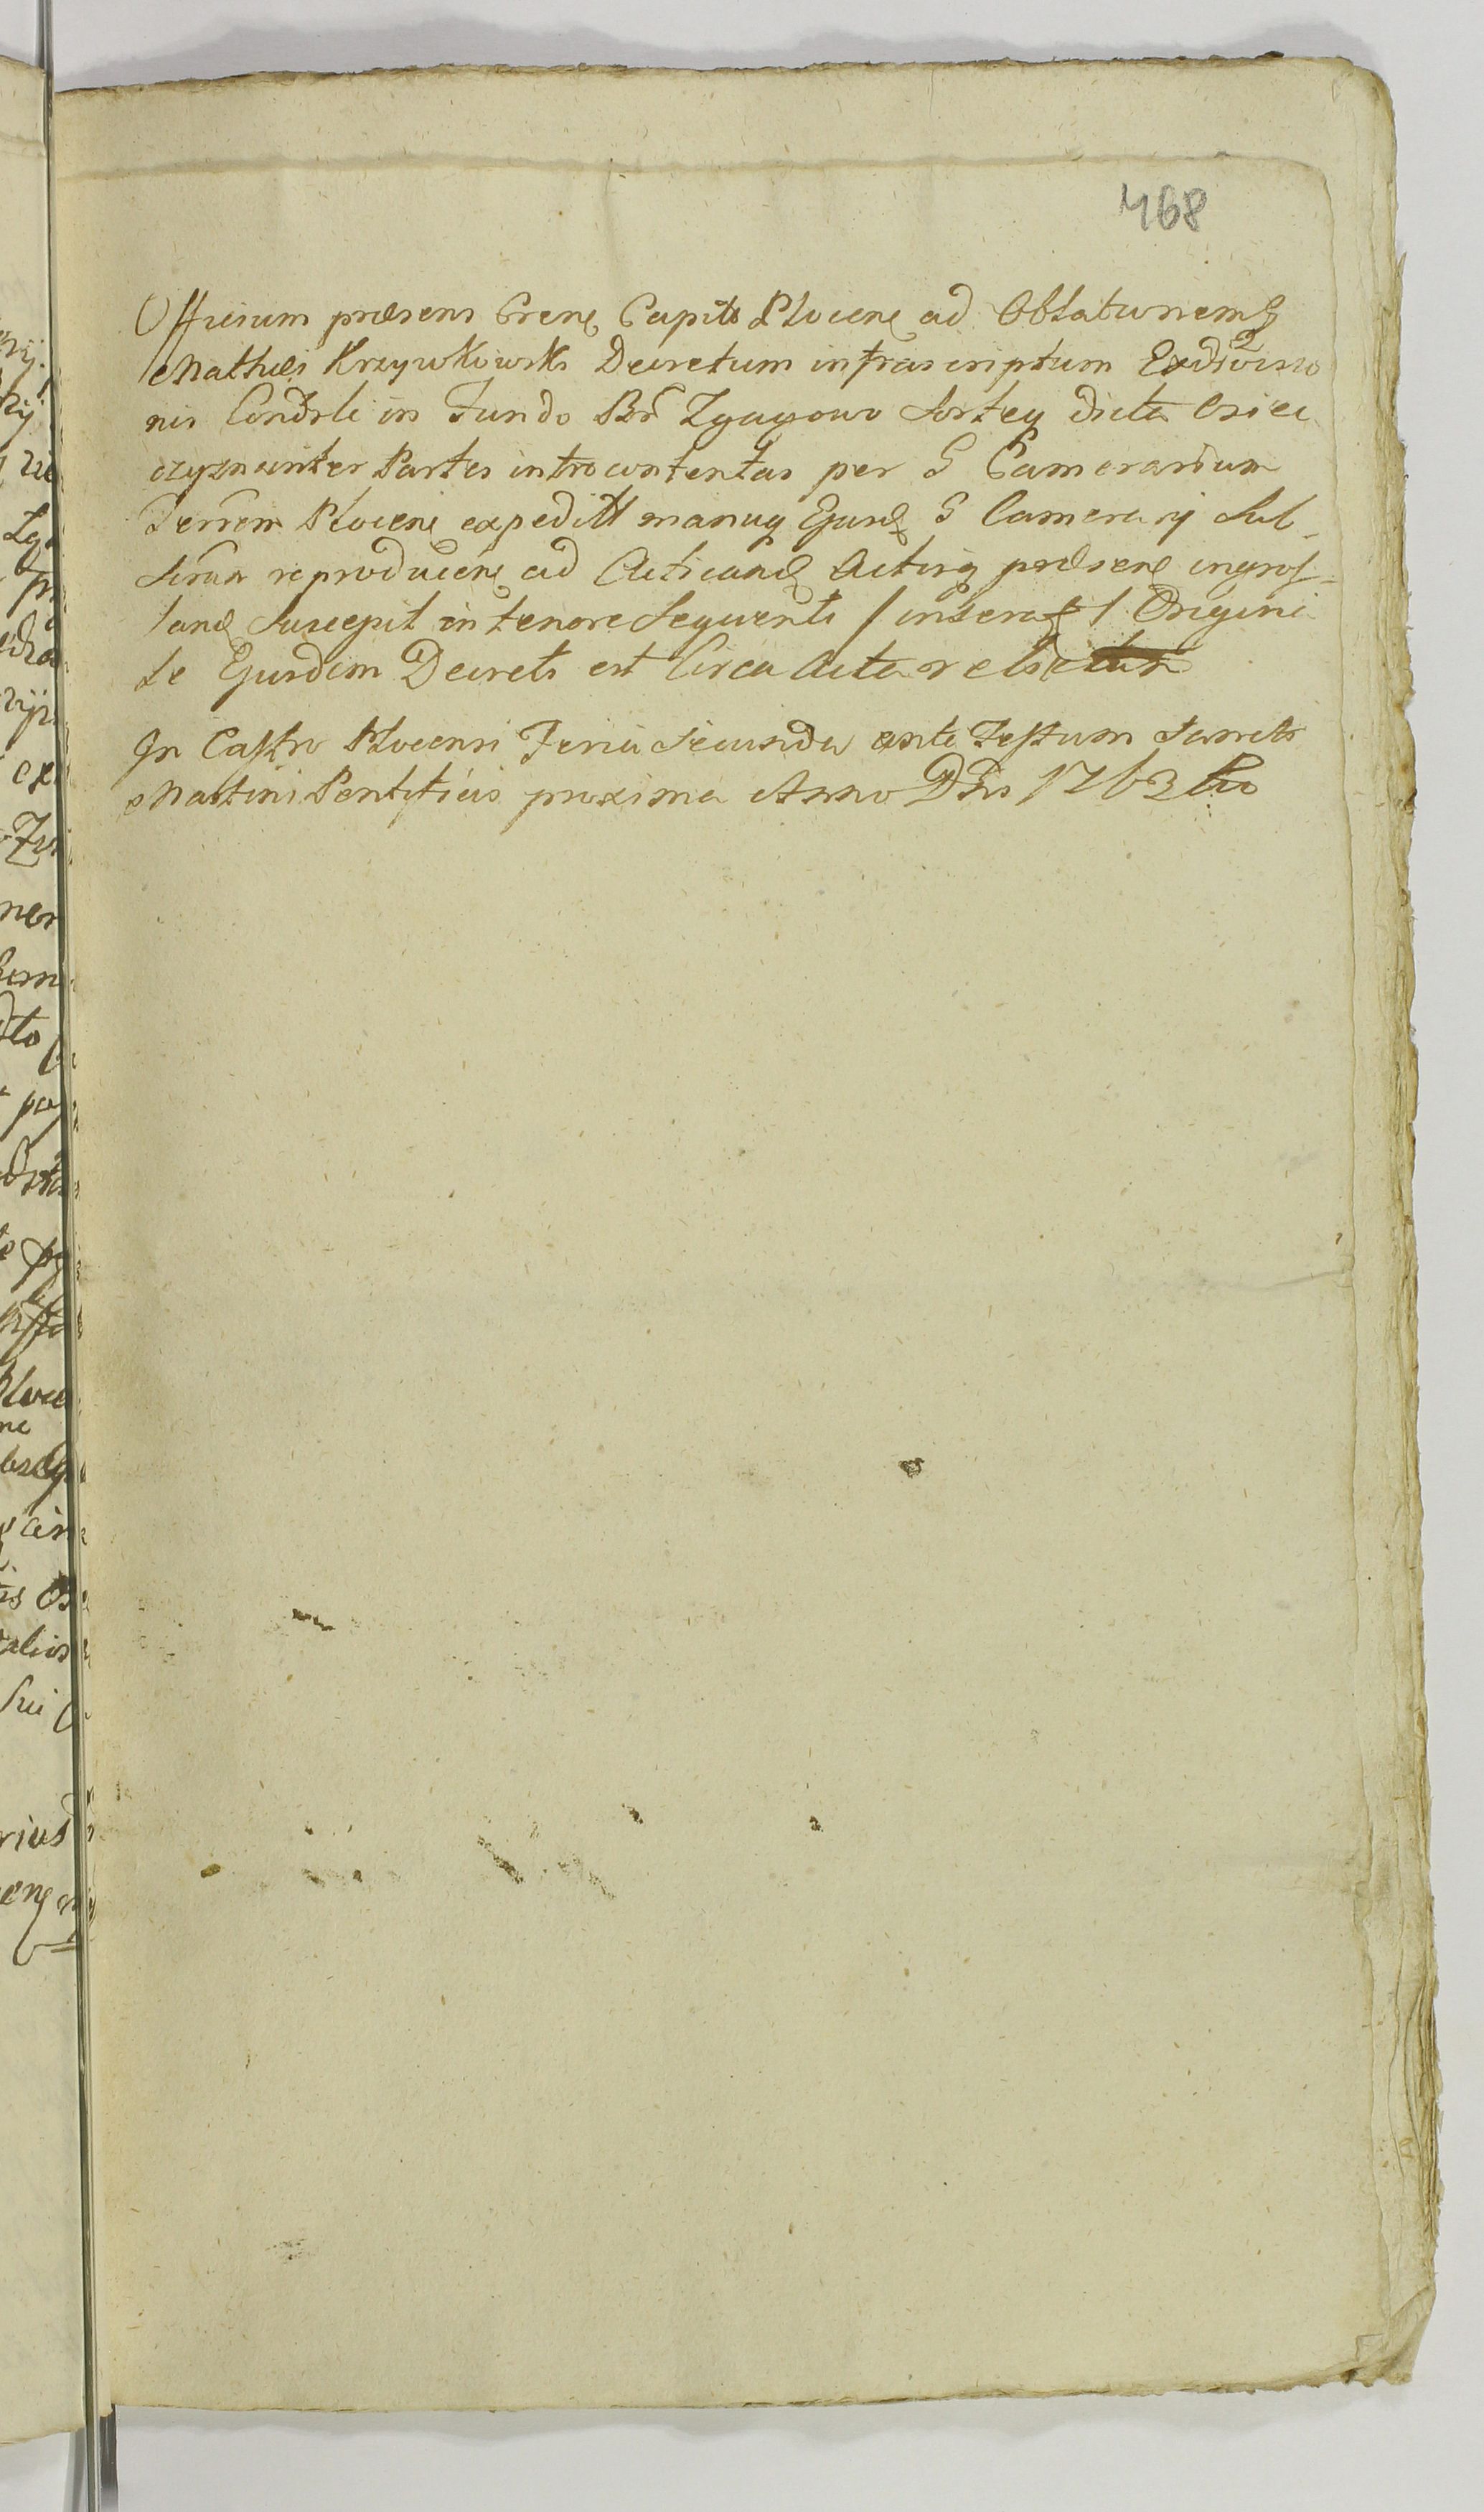 468
Officium præsens Crene Capitt Plocene ad Oblationem G
Mathiæi Krzywkowski Decretum infrascriptum Exdiviso
nis Condrli in Fundo Bnr Zgagowo Sorteq dicta Osiec
czyzna inter Partes intro contentas per G Camerarium
Terrem Plocene expeditt manuq Ejusd G Camerarij Sub
scrua reproducene ad Acticand Actisq præsene ingros=
sand Suscepit in tenore Sequenti / inserat / Origina
le Ejusdem Decreti est Circa Acta relictum
In Castro Plocensi Feria Secunda ante Festum Sancti
Martini Pontificis proxima Anno Dni 1763tio